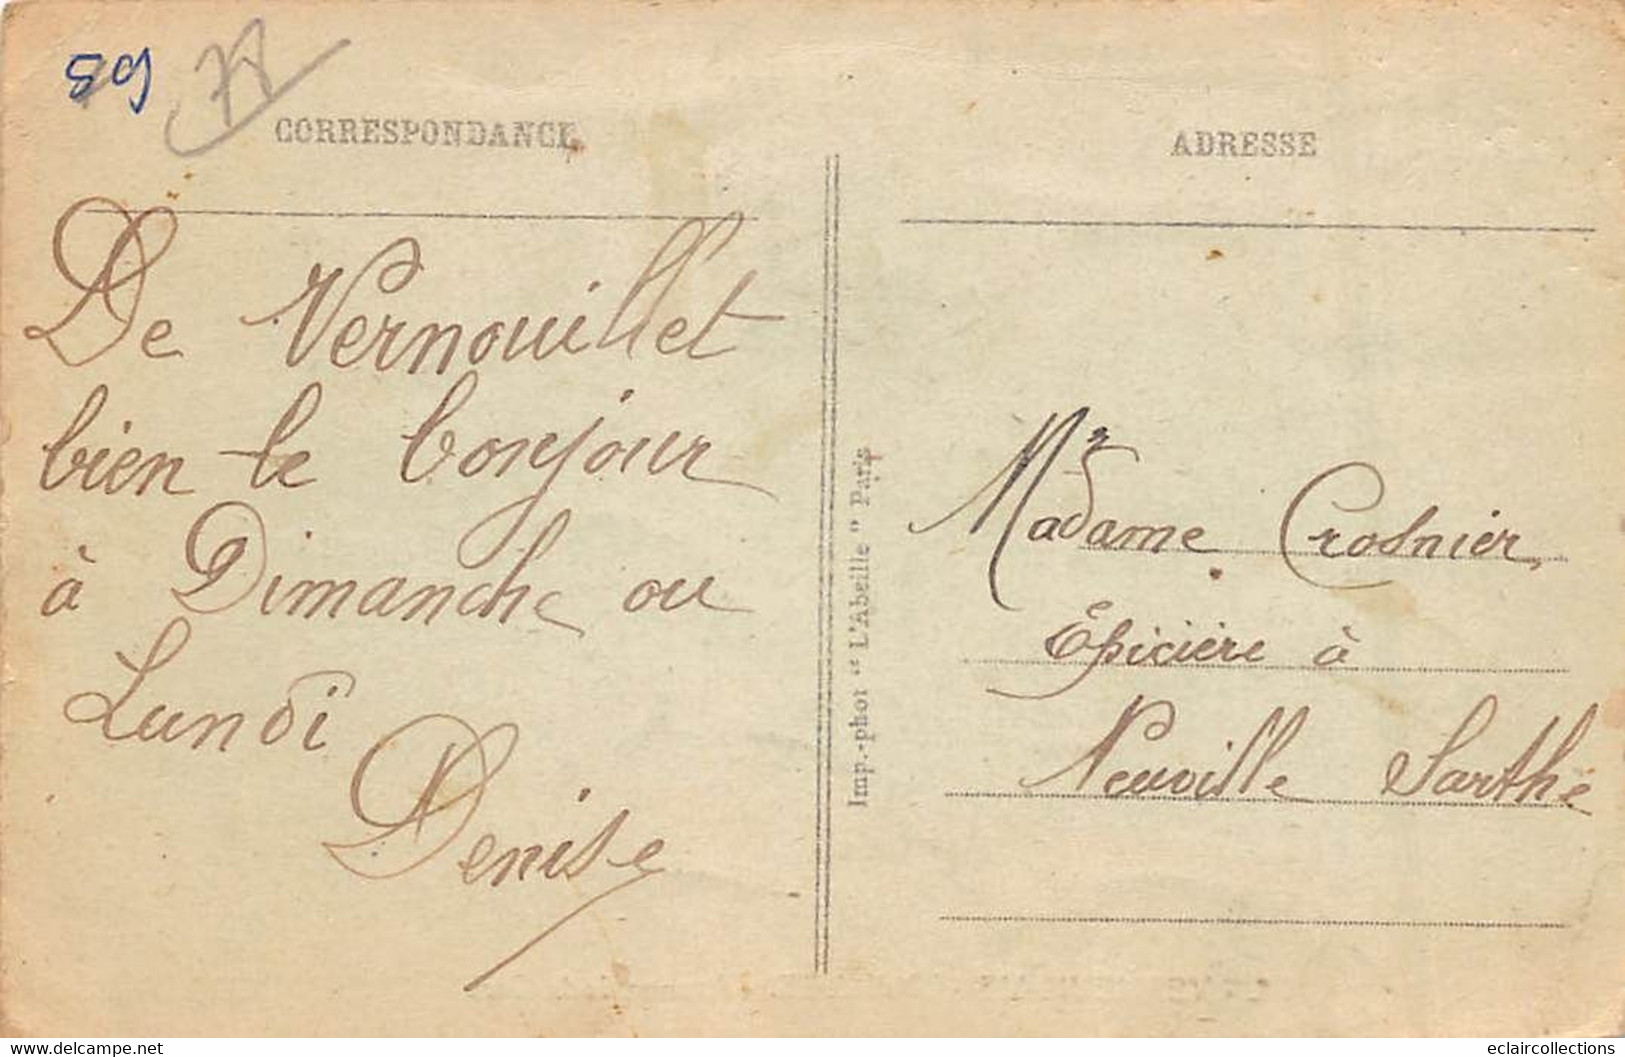 59
CORRESPONDANCE
De Vernouillet
bien le bonjour
à Dimanche ou
Lundi
Denise
Imp.-phot "L'Abeille" Paris
ADRESSE
Madame Crosnier
Épicière à
Neuville Sarthe
www.delcampe.net
eclaircollections